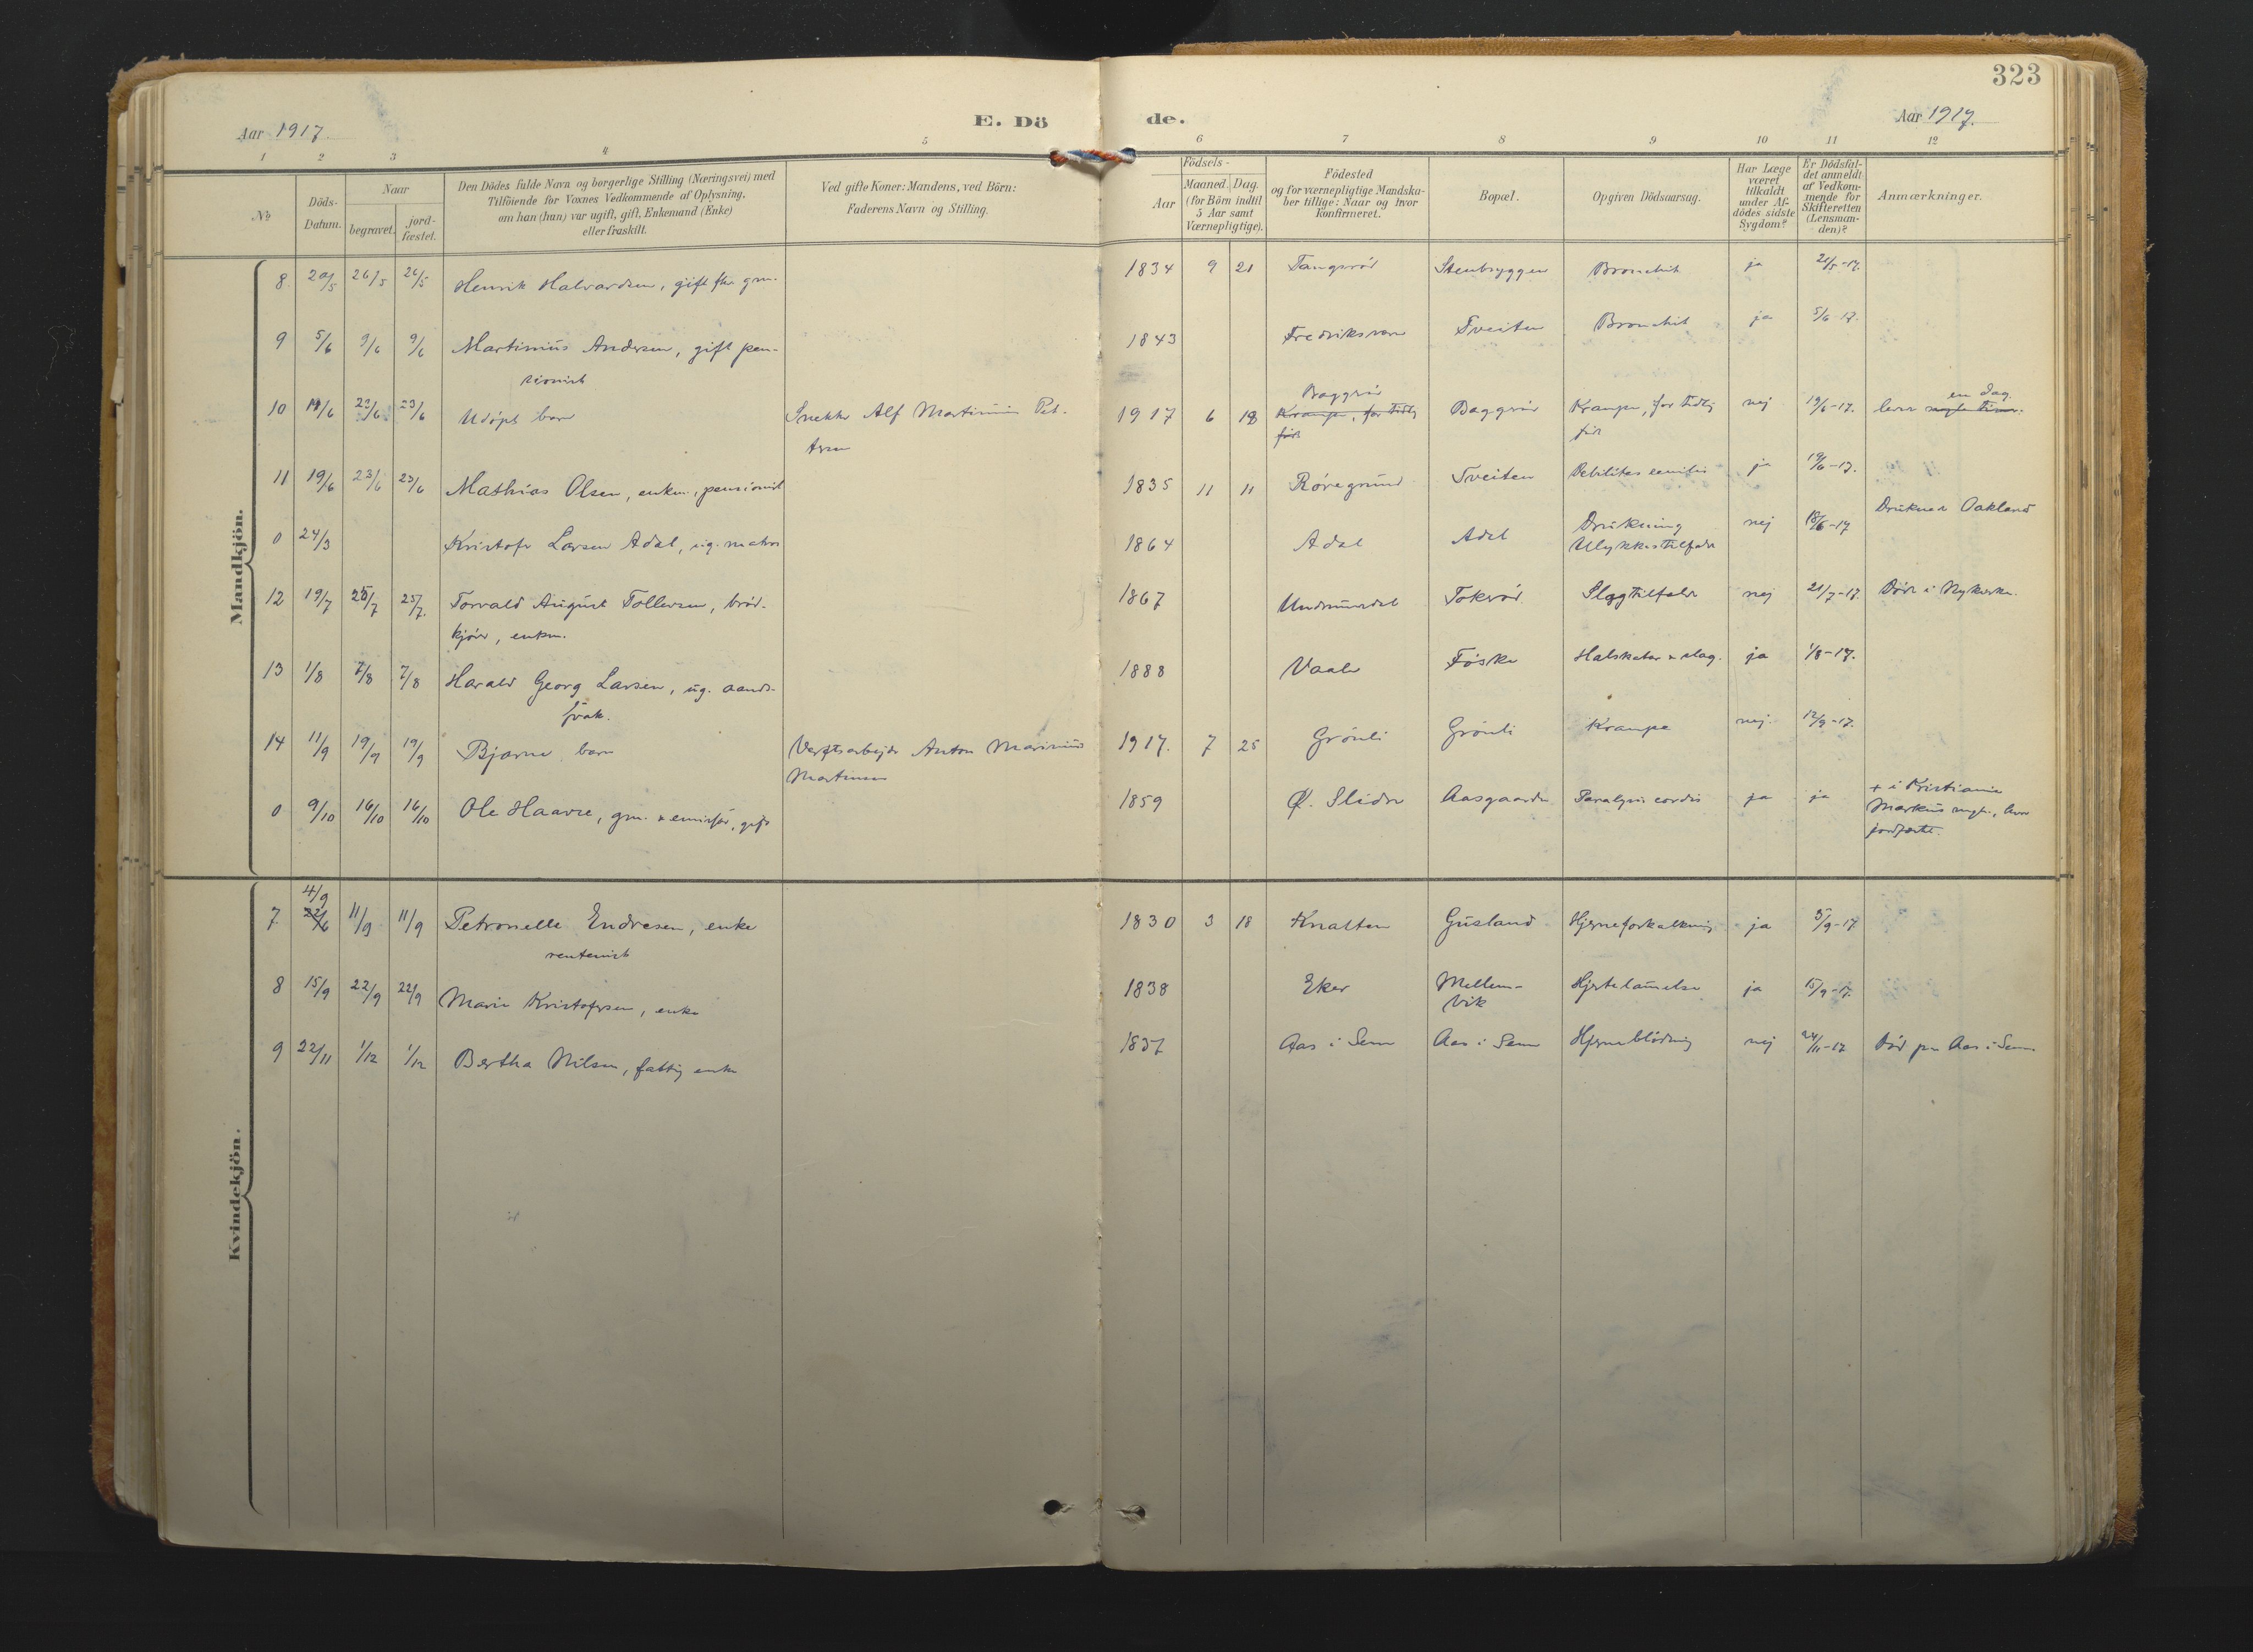 323
Aar 1917. E. Dö de. Aar 1917.
1 2 3 4 5 6 7 8 9 10 11 12
No
Döds-Datum.
Naar
begravet.
jord-
fæstet.
Den Dödes fulde Navn og borgerlige Stilling (Næringsvei) med
Tilföiende for Voxnes Vedkommende af Oplysning,
om han (hun) var ugift, gift, Enkemand (Enke)
eller fraskilt.
Ved gifte Koner: Mandens, ved Börn:
Faderens Navn og Stilling.
Födsels-
Aar
Maaned. Dag.
(for Börn indtil
5 Aar samt
Værnepligtige).
Födested
og for værnepligtige Mandska-
ber tillige: Naar og hvor
konfirmeret.
Bopæl.
Opgiven Dödsaarsag.
Har Læge
været
tilkaldt
under Af-
dödes sidste
Sygdom?
Er Dödsfal-
det anmeldt
af Vedkom-
mende for
Skifteretten
(Lensman-
den)?
Anmærkninger.
Mandkjön.
8 20/5 26/5 26/5 Henrik Halvardsen, gift fhv gm. 1834 9 21 Tangsrød Stenbryggen Bronchit ja 21/5-17.
9 5/6 9/6 9/6 Martinius Andersen, gift pen-
sionist 1843 Fredriksværn Tveiten Bronchit ja 5/6-17.
10 19/6 23/6 23/6 Udøpt barn Snekker Alf Martinius Pet-
tersen 1917 6 18 Baggrød
Krampe, for tidlig
født Baggrød Krampe, for tidlig
født nej 19/6-17. levet nogle timer. en dag.
11 19/6 23/6 23/6 Mathias Olsen, enkm., pensionist 1835 11 11 Røregrund Tveiten Debilitas senilis ja 19/6-17.
0 24/3 Kristofer Larsen Adal, ug. matros 1864 Adal Adal Drukning
Ulykkestilfælde nej 18/6-17 Druknet Oakland
12 19/7 25/7 25/7. Torvald August Tollevsen, brød-
kjører, enkm. 1867 Undrumsdal Tokerød Slagtilfælde nej 21/7-17. Død i Nykirke.
13 1/8 7/8 7/8 Harald Georg Larsen, ug. aands-
svak. 1888 Vaale Føske Halskatar & slag. ja 1/8-17.
14 11/9 19/9 19/9 Bjarne, barn Verftsarbejder Anton Marinius
Martinsen 1917. 7 25 Grønli Grønli Krampe nej. 12/9-17.
0 9/10 16/10 16/10 Ole Haavre, gm. & emissær, gift 1859 Ø. Slidre Aasgaarden Paralysis cordis ja ja + i Kristiania
Markus mgh., hvor
jordfæstet.
Kvindekjön.
7. 22/6 4/9 11/9 11/9 Petronelle Endresen, enke
rentenist 1830 3 18 Knatten Gusland Hjerneforkalkning ja 5/9-17
8 15/9 22/9 22/9 Marie Kristofersen, enke 1838 Eker Mellem-
vik Hjertelammelse ja 15/9-17.
9 22/11 1/12 1/12 Bertha Nilsen, fattig enke 1837 Aas i Sem Aas i Sem Hjerneblødning nej 24/11-17 Død paa Aas i Sem